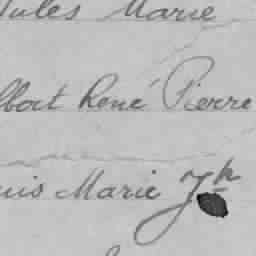 Jules Marie
lbert René Pierre
uis Marie Jh